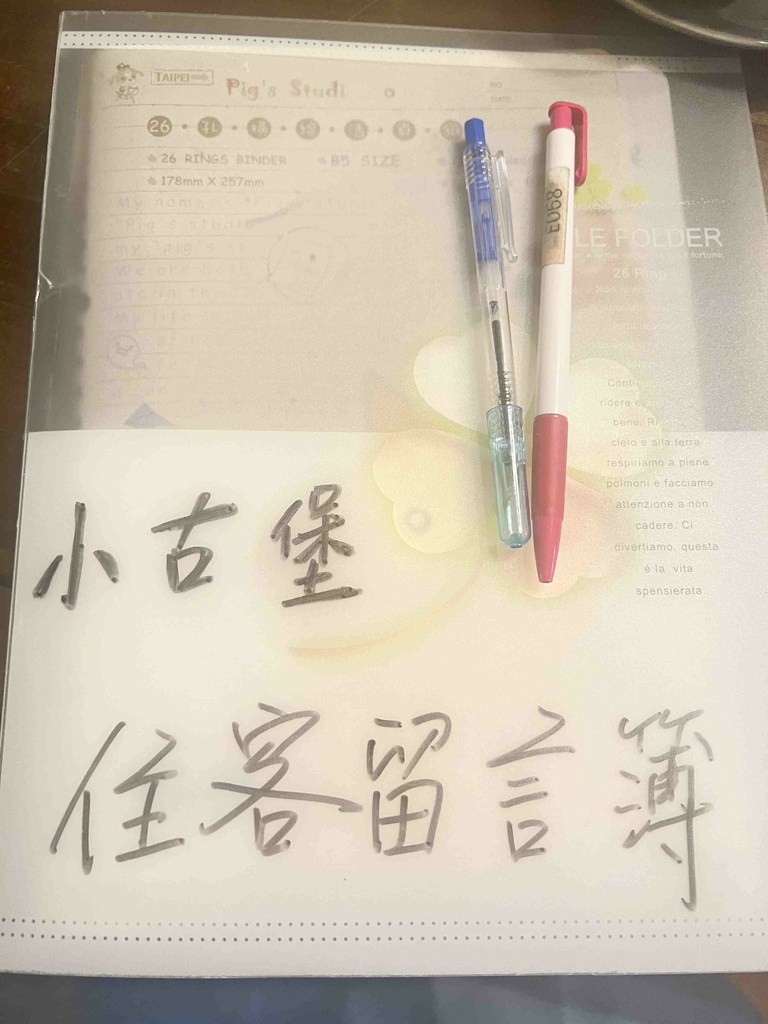 TAIPEI
Pig's Studi o
NO
DATE
26 孔
26 RINGS BINDER B5 SIZE
178mm X 257mm
My name is
Pig's studio
my pig's
We are
My life
E068
LE FOLDER
26 Ring
Conti
ridere e
bene. Ri
cielo e alla terra
respiriamo a piene
polmoni e facciamo
attenzione a non
cadere. Ci
divertiamo, questa
è la vita
spensierata
小古堡
住客留言簿